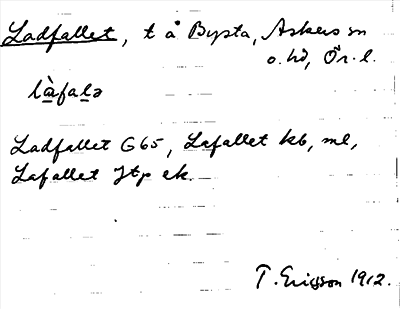 Ladfallet, t å Bysta, Askers sn
o. hd, Ör. l.
là̱fala̱ə
Ladfallet G65, Lafallet kb, ml,
Lafallet Jtp ek.
T. Ericsson 1912.